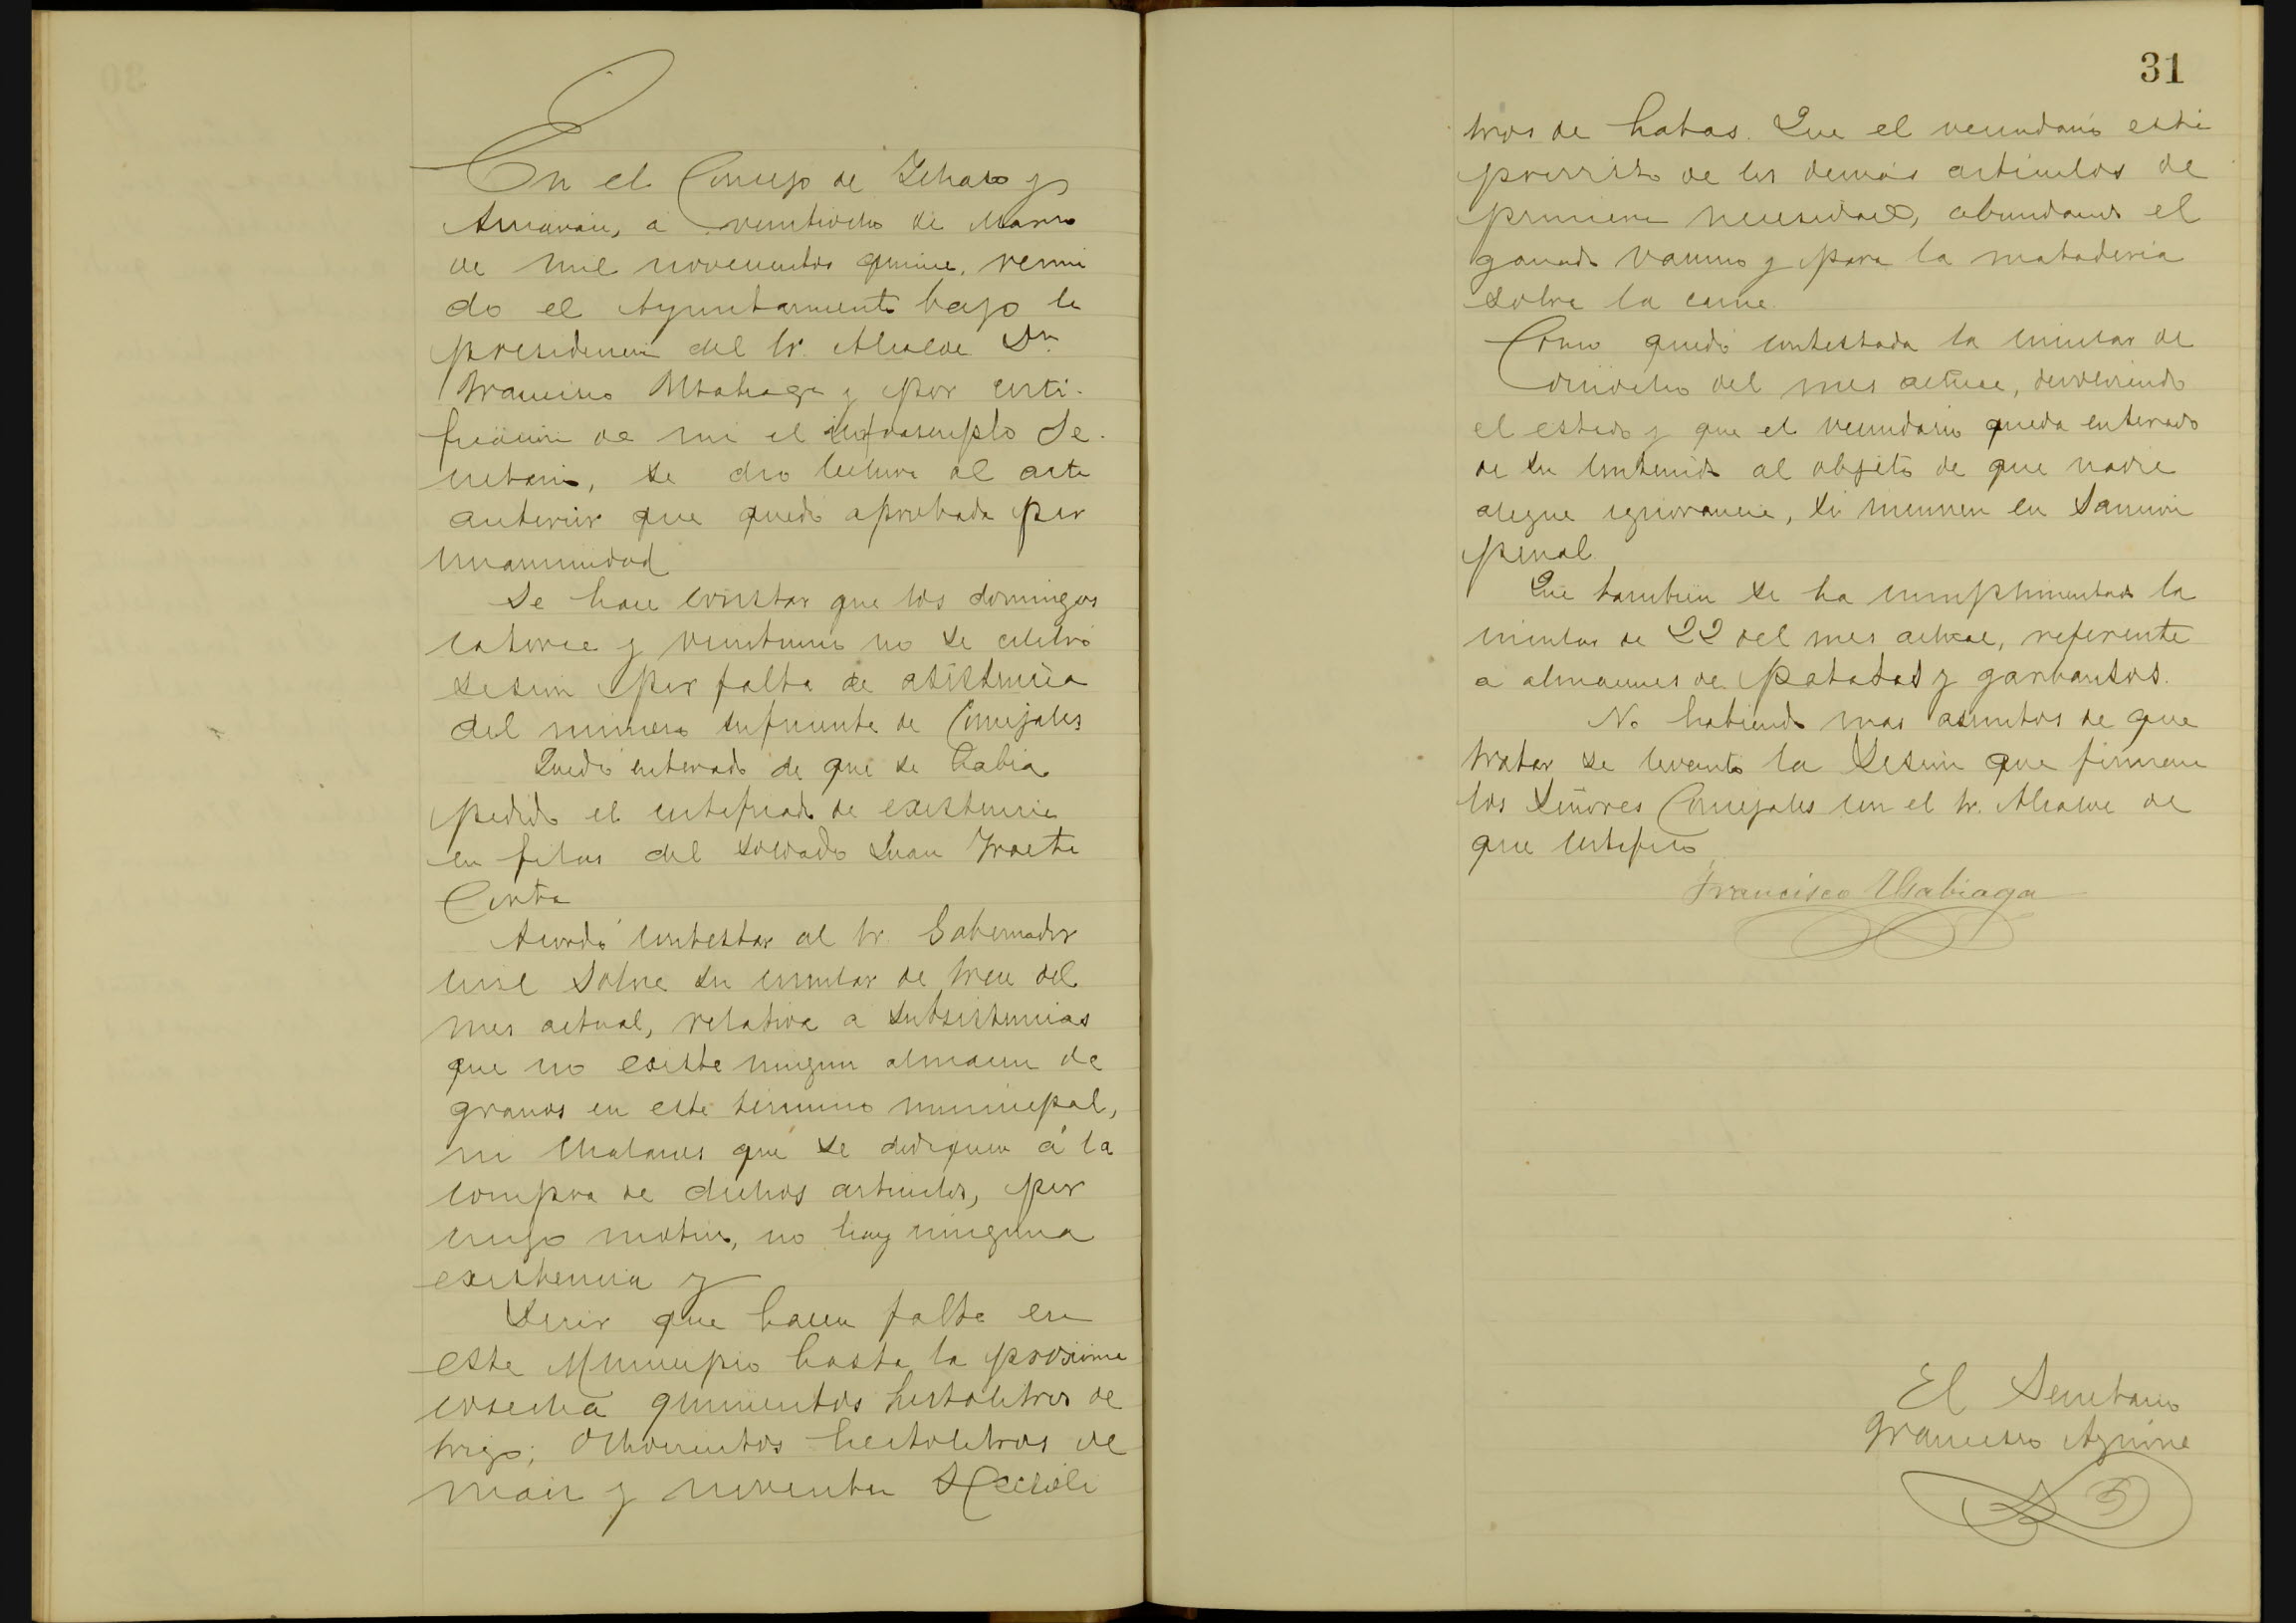 En el Concejo de Ichaso y
Arriaran, a veintiocho de Marzo
de mil novecientos quince, reuni
do el Ayuntamiento bajo la
presidencia del Sr. Alcalde Dn
Francisco Usabiaga y por certi-
ficacion de mi el infrascripto Se-
cretario, se dio lectura al acta
anterior que quedó aprobada por
unanimidad
Se hace constar que los domingos
catorce y veintiuno no se celebró
sesion por falta de asistencia
del numero suficiente de Concejales
Quedó enterado de que se había
pedido el certificado de existencia
en filas del soldado Juan Yraeta
Acordó contestar al Sr. Gobernador
civil sobre su circular de trece del
mes actual, relativa a subsistencias
que no existe ningun almacen de
granos en este termino municipal,
ni chalanes que se dediquen á la
compra de dichos articulos, por
cuyo motivo, no hay ninguna
existencia y
Decir que hacen falta en
este Municipio hasta la proxima
cosecha quinientos hectolitros de
trigo; ochocientos hectolitros de
maiz y noventa Hectoli
31
tros de habas. Que el vecindario está
provisto de los demás articulos de
primera necesidad, abundando el
ganado vacuno y para la mataderia
sobra la carne.
Como quedó contestada la circular de
dieciocho del mes actual, devolviendo
el estado y que el vecindario queda enterado
de su contenido al objeto de que nadie
alegue ignorancia, si incurren en sancion
penal
Que tambien se ha cumplimentado la
circular de 22 del mes actual, referente
a almacenes de patatas y garbansos.
No habiendo mas asuntos de que
tratar se levantó la Sesion que firman
los Señores Concejales con el Sr. Alcalde de
que certifico
Francisco Usabiaga
El Secretario
Francisco Aguirre